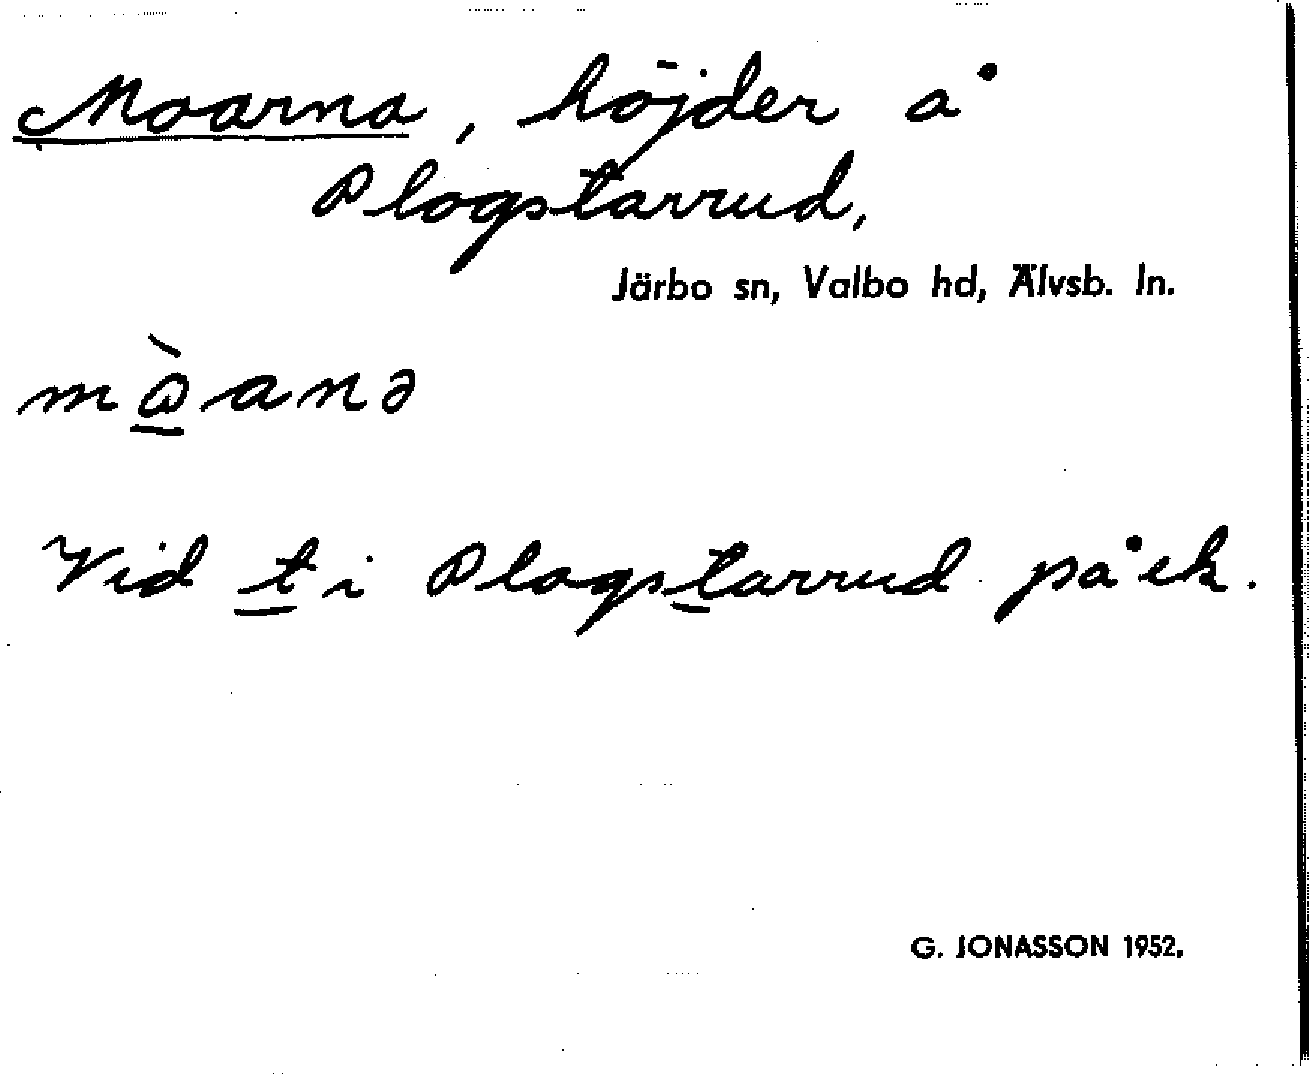 Moarna, höjder å
Plogstarrud,
Järbo sn, Valbo hd, Älvsb. ln.
mò̲anə
Vid t̲ i Plogst̲arrud på ek.
G. JONASSON 1952.